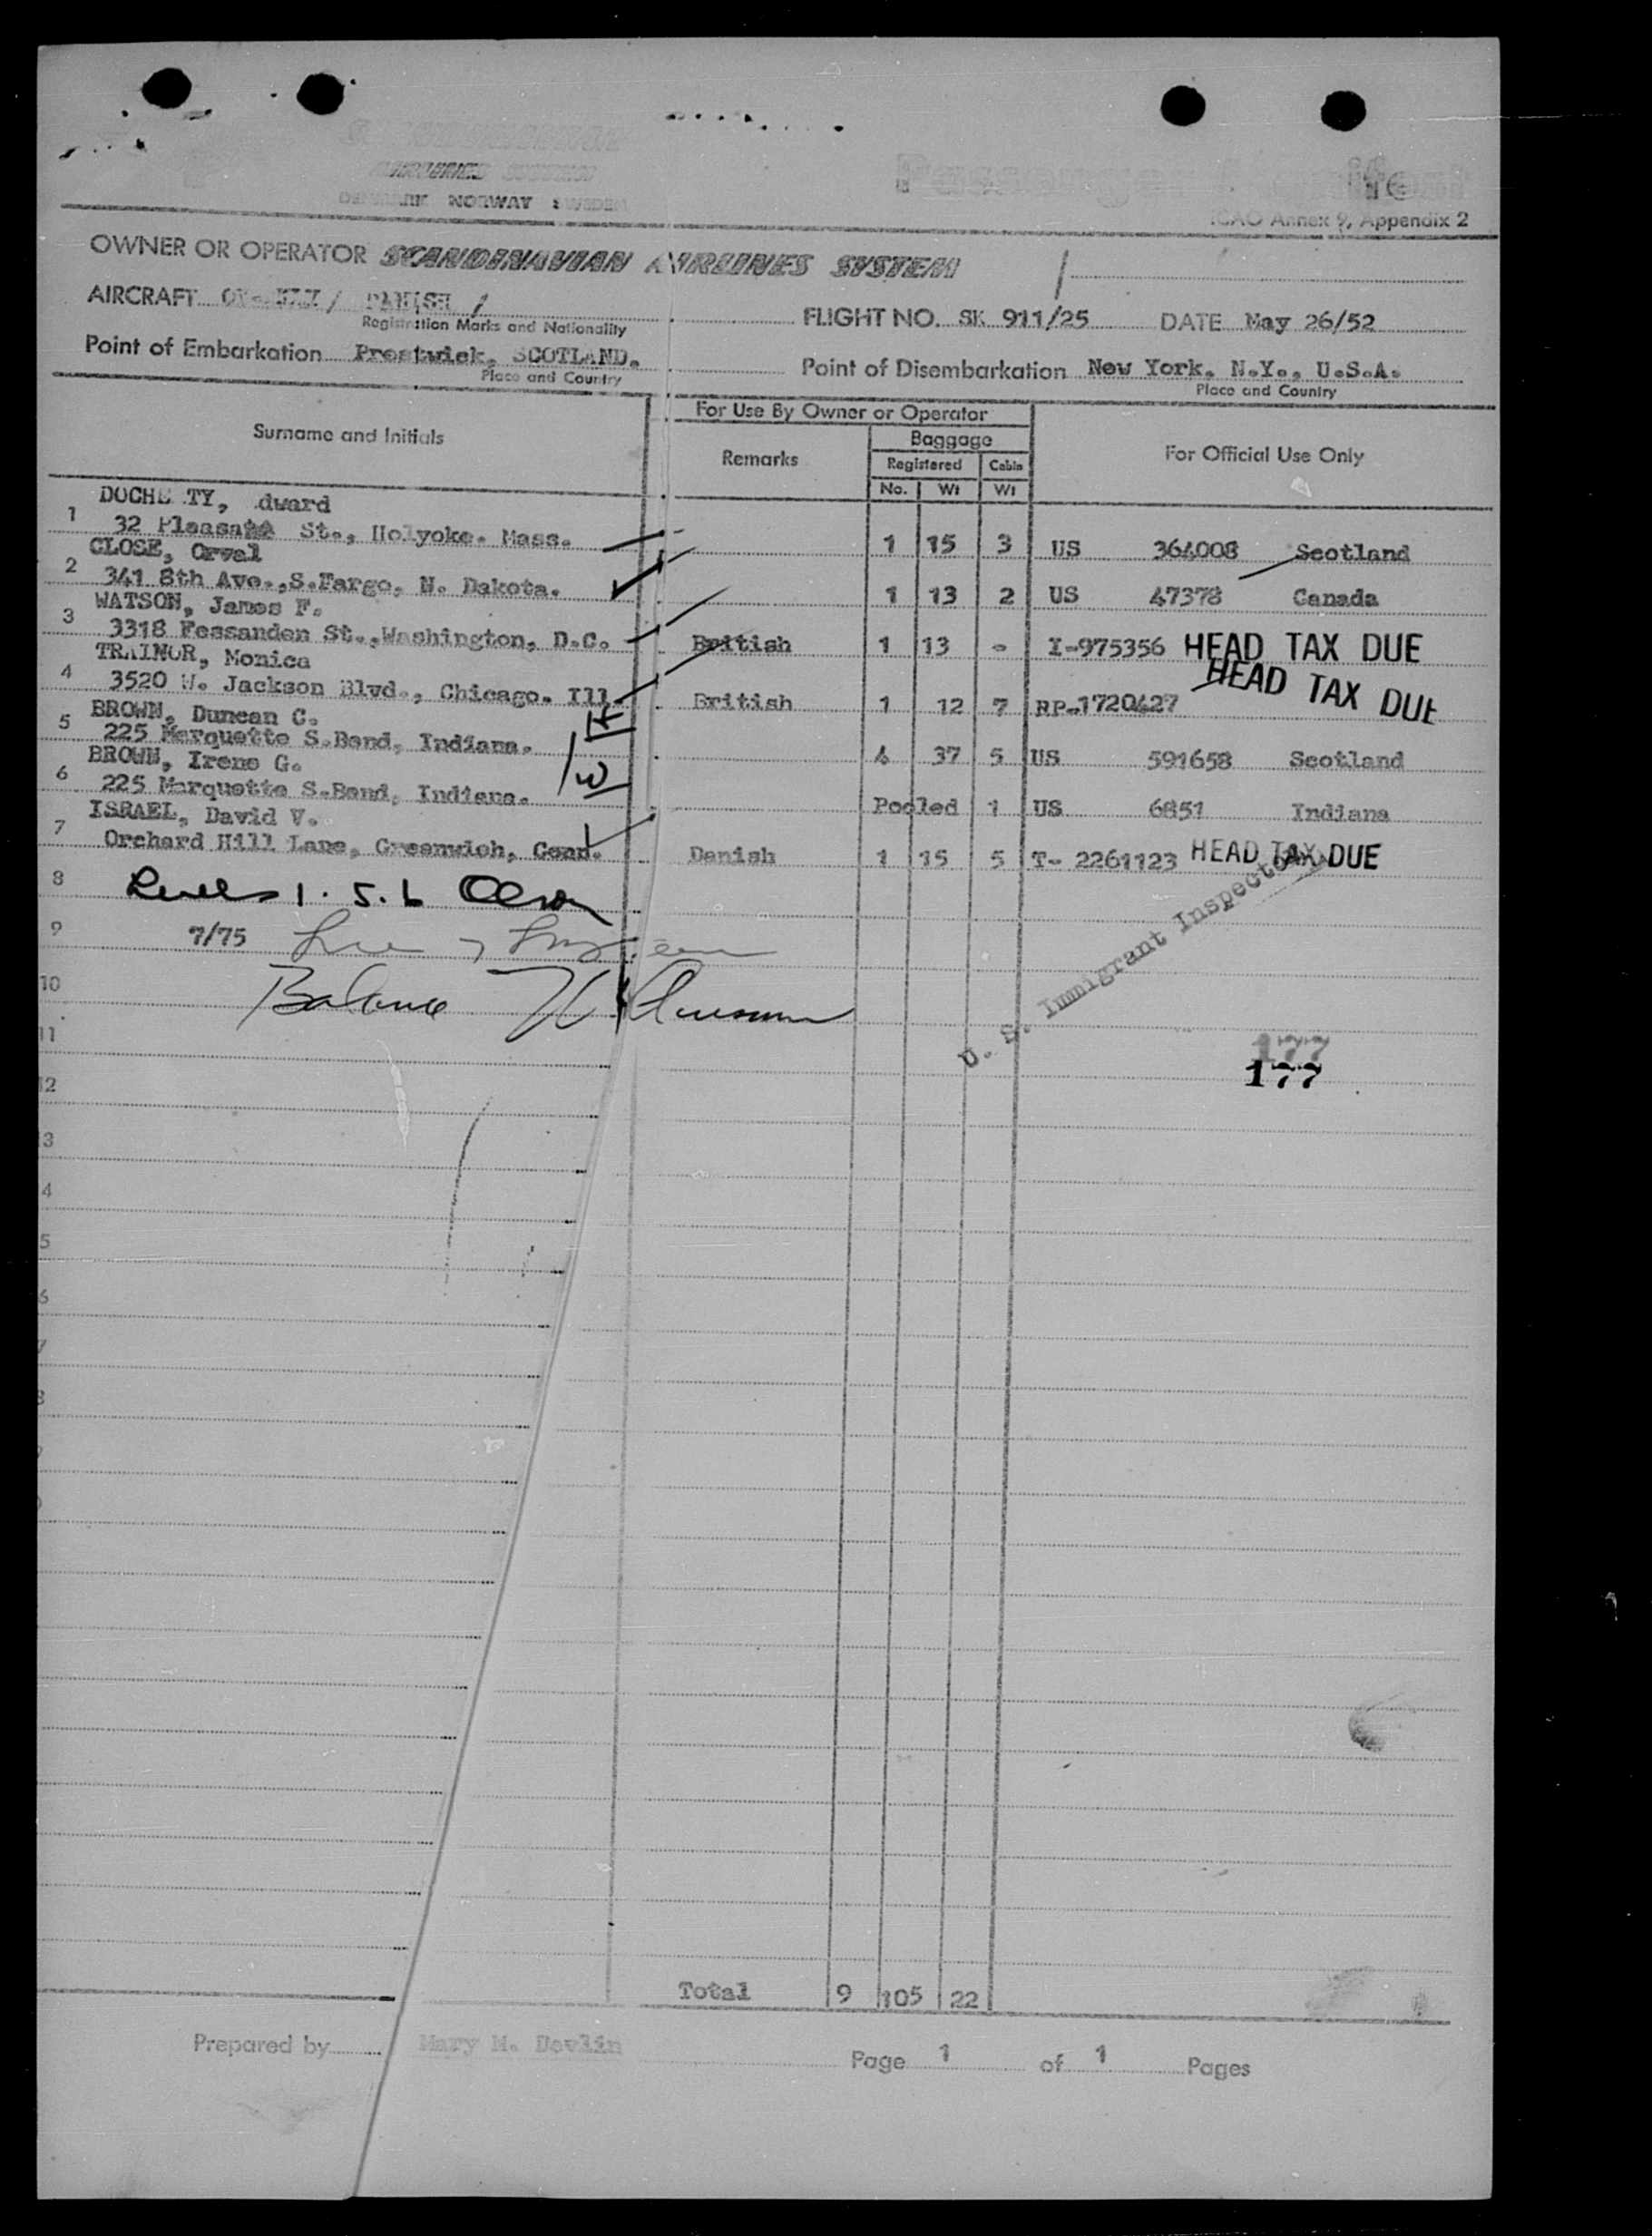 DENMARK NORWAY SWEDEN
ICAO Annex 9, Appendix 2
OWNER OR OPERATOR SCANDINAVIAN AIRLINES SYSTEM
AIRCRAFT
Registration Marks and Nationality
FLIGHT NO. SK 911/25 DATE May 26/52
Point of Embarkation Prestwick, SCOTLAND.
Place and Country
Point of Disembarkation New York, N.Y., U.S.A.
Place and Country
Surname and Initials
For Use By Owner or Operator
Remarks
Baggage
Registered Cabin
No. Wt Wt
For Official Use Only
DOCHE TY, dward
1 32 Pleasant St., Holyoke. Mass. 1 15 3 US 364008 Scotland
CLOSE, Orval
2 341 8th Ave.,S.Fargo, N. Dakota. 1 13 2 US 47378 Canada
WATSON, James F.
3 3318 Fessanden St.,Washington, D.C. British 1 13 - I-975356 HEAD TAX DUE
TRAINOR, Monica
4 3520 W. Jackson Blvd., Chicago. Ill. British 1 12 7 RP-1720427 HEAD TAX DUE
BROWN, Duncan C.
5 225 Marquette S.Bend, Indiana. 4 37 5 US 591658 Scotland
BROWN, Irene G.
6 225 Marquette S.Bend, Indiana. Pooled 1 US 6851 Indiana
ISRAEL, David V.
7 Orchard Hill Lane, Greenwich, Conn. Danish 1 15 5 T- 2261123 HEAD TAX DUE
8 1.5.6 Olson
9 7/75
10 Balance
U. S. Immigrant Inspector
11
177
177
12
13
14
15
Total 9 105 22
Prepared by Mary M. Devlin
Page 1 of 1 Pages